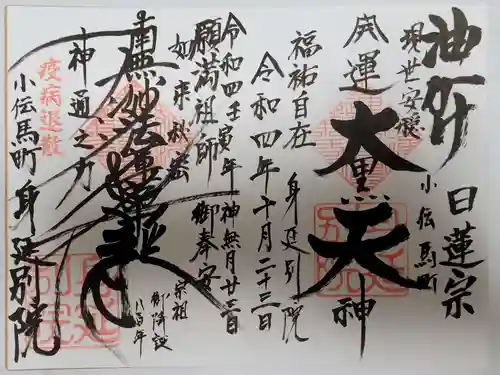 油断
日蓮宗
現世安穏
小伝馬町
開運
大黒天神
福祐自在
身延別院
令和四年十月二十三日
令和四壬寅年神無月廿三日
願満祖師
御奉安
如来秘密
宗祖
御降誕
八百年
南無妙法蓮華経
神通之力
疫病退散
小伝馬町身延別院